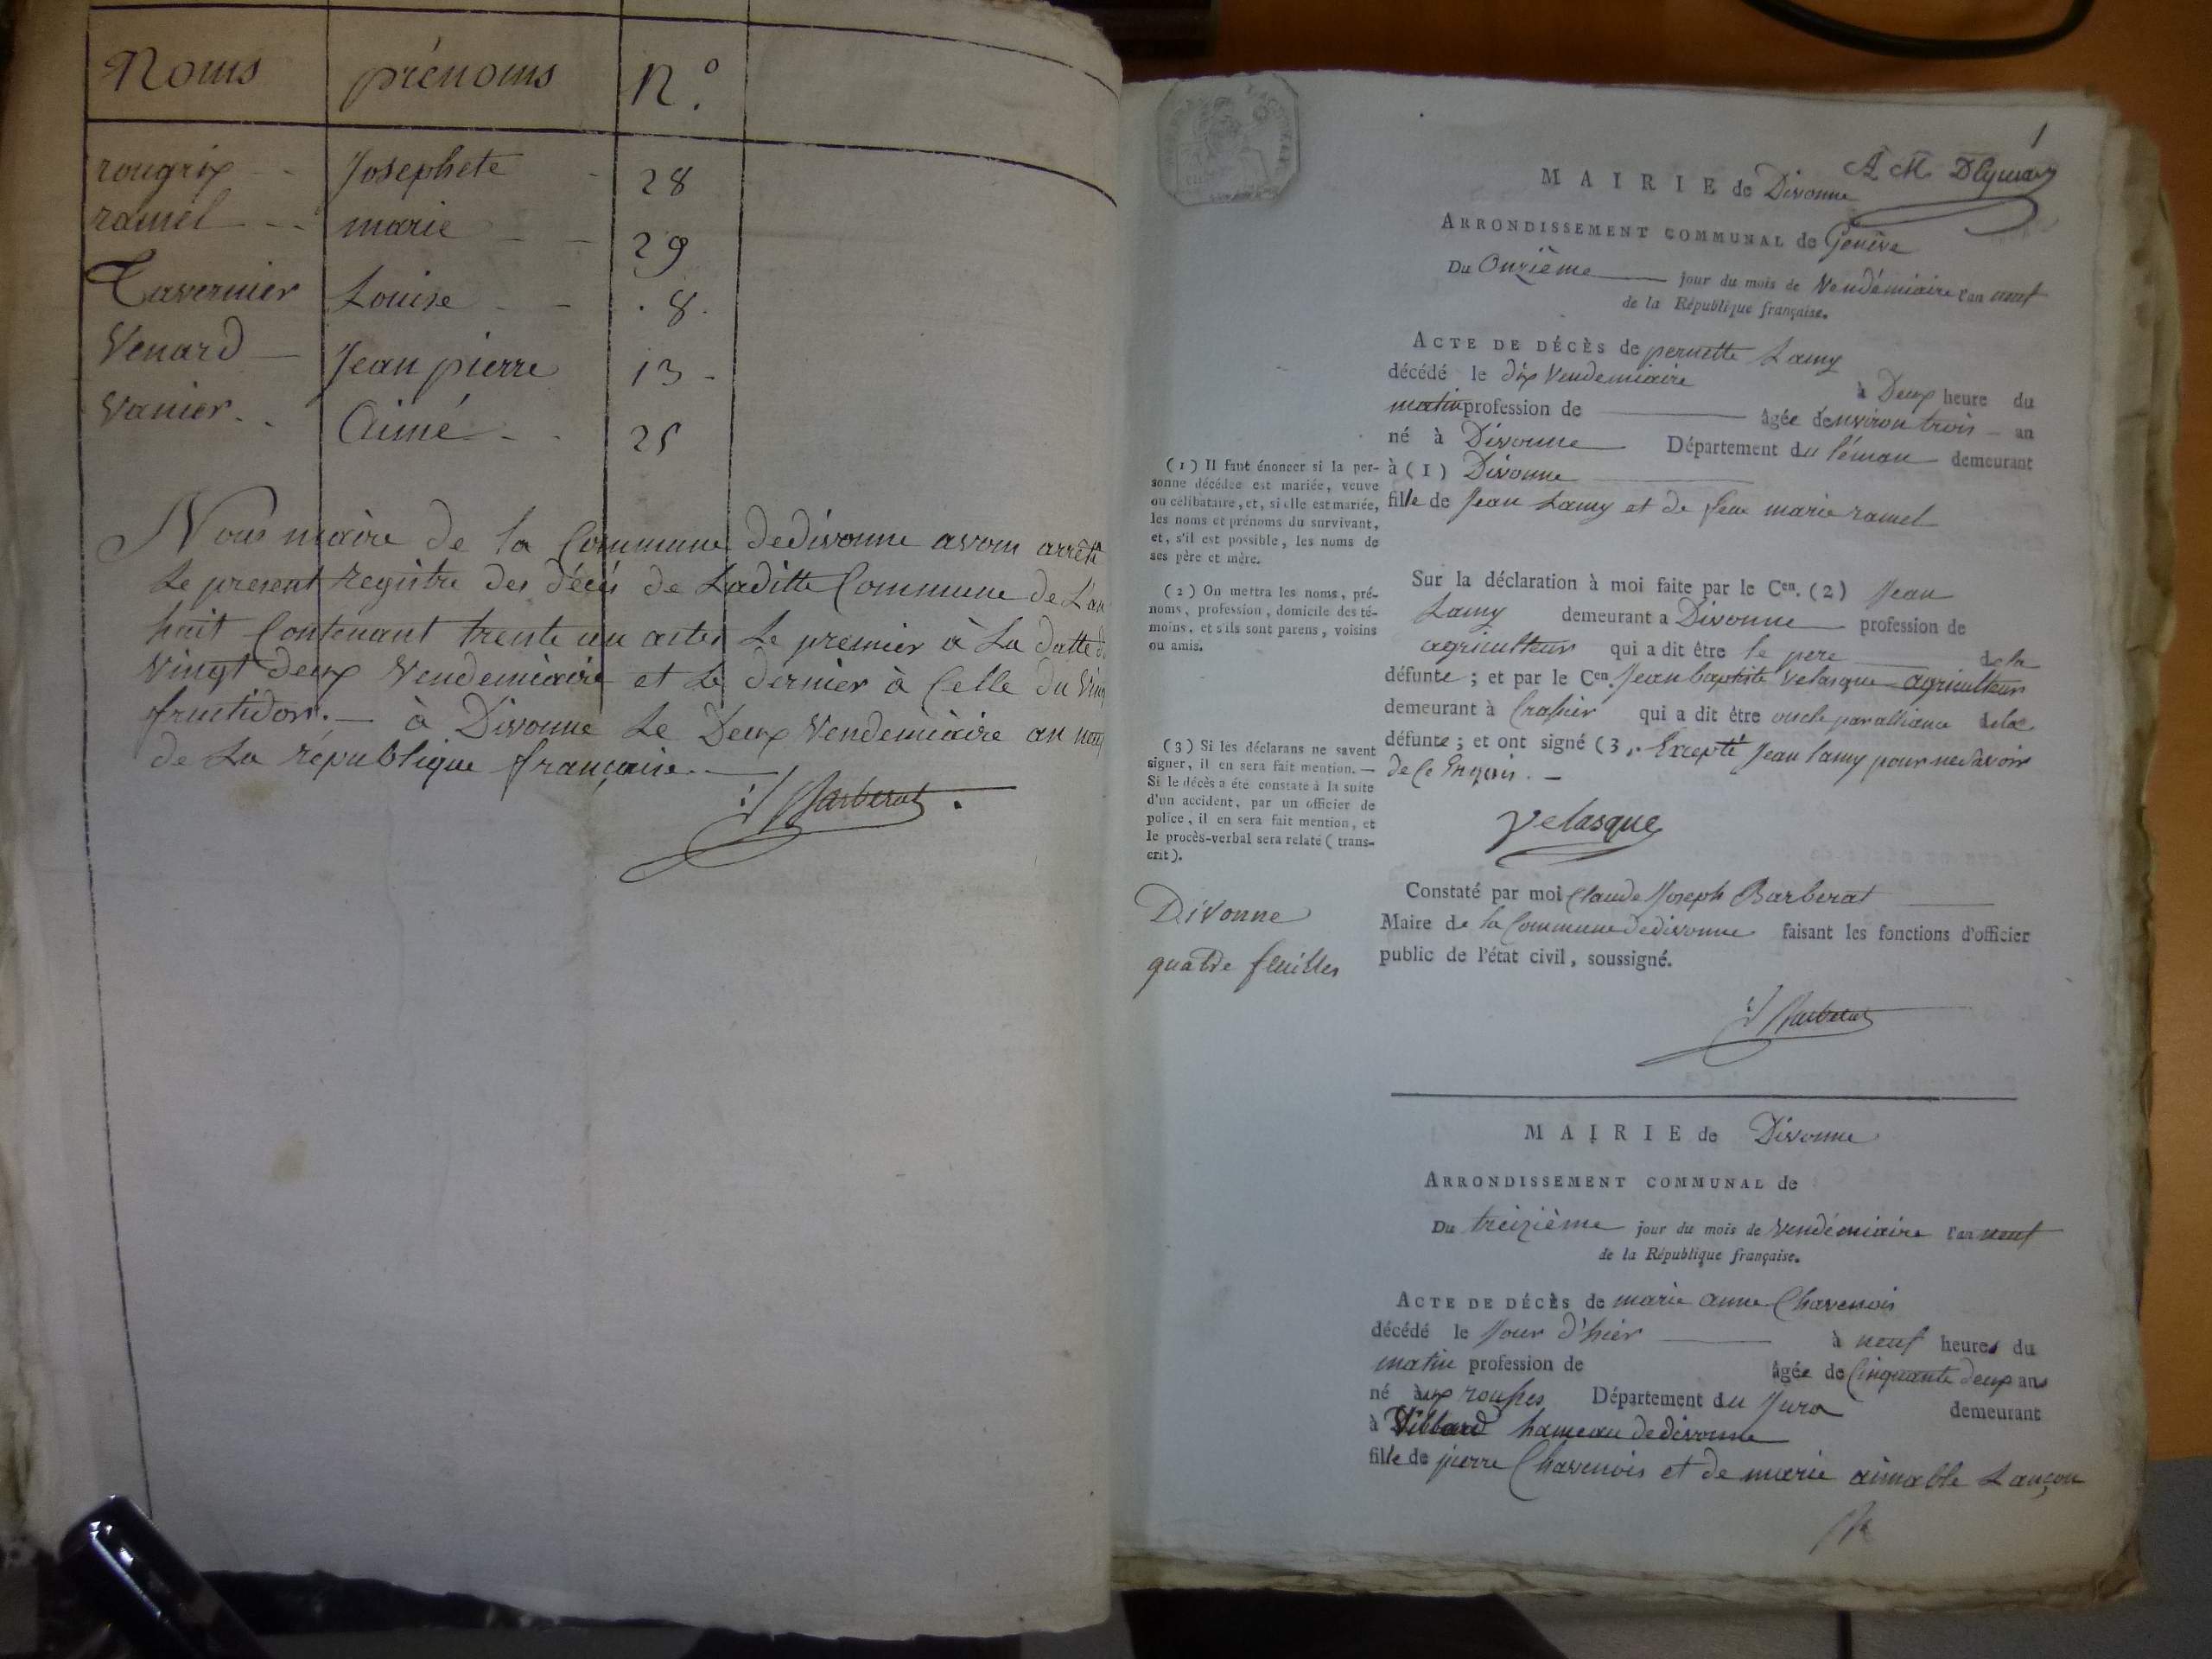 Noms prénoms N.º
rougrix Josephete 28
ramel marie 29
Tavernier Louise 8
Venard Jean pierre 13
Vanier Aimé 25
Nous maire de la Commune dedivonne avons arrêté
Le present Registre des décés de Laditte Commune de L'an
huit Contenant trente un actes Le premier à La datte
Vingt deux Vendemiaire et Le dernier à Celle du
fructidor. à Divonne Le Deux Vendemiaire an
de La république française.
Barberat
1
A M
MAIRIE de Divonne
ARRONDISSEMENT COMMUNAL de Genève
Du Onzième jour du mois de Vendémiaire l'an neuf
de la République française.
ACTE DE DÉCÈS de pernette Lamy
décédé le dix Vendemiaire à Deux heure du
matin profession de âgée d'environ trois an
né à Divonne Département du léman demeurant
à (1) Divonne
fille de Jean Lamy et de feue marie ramel
(1) Il faut énoncer si la per-
sonne décédée est mariée, veuve
ou célibataire, et, si elle est mariée,
les noms et prénoms du survivant,
et, s'il est possible, les noms de
ses père et mère.
(2) On mettra les noms, pré-
noms, profession, domicile des té-
moins, et s'ils sont parens, voisins
ou amis.
(3) Si les déclarans ne savent
signer, il en sera fait mention. —
Si le décès a été constaté à la suite
d'un accident, par un officier de
police, il en sera fait mention, et
le procès-verbal sera relaté (trans-
crit).
Divonne
quatre feuilles
Sur la déclaration à moi faite par le Cen. (2) Jean
Lamy demeurant a Divonne profession de
agriculteur qui a dit être le pere de la
défunte ; et par le Cen. Jean baptiste Velasque agriculteur
demeurant à Crassier qui a dit être oncle par alliance dela
défunte ; et ont signé (3, Excepté Jean lamy pour ne savoir
de Ce Enquis.
Velasque
Constaté par moi Claude Joseph Barberat
Maire de la Commune dedivonne faisant les fonctions d'officier
public de l'état civil, soussigné.
Barberat
MAIRIE de Divonne
ARRONDISSEMENT COMMUNAL de
Du treizième jour du mois de Vendémiaire l'an neuf
de la République française.
ACTE DE DÉCÈS de marie anne Chavenois
décédé le Jour d'hier à neuf heures du
matin profession de âgée de Cinquante deux ans
né aux rousses Département du Jura demeurant
à Villard hameau dedivonne
fille de pierre Chavenois et de marie aimable Lançon